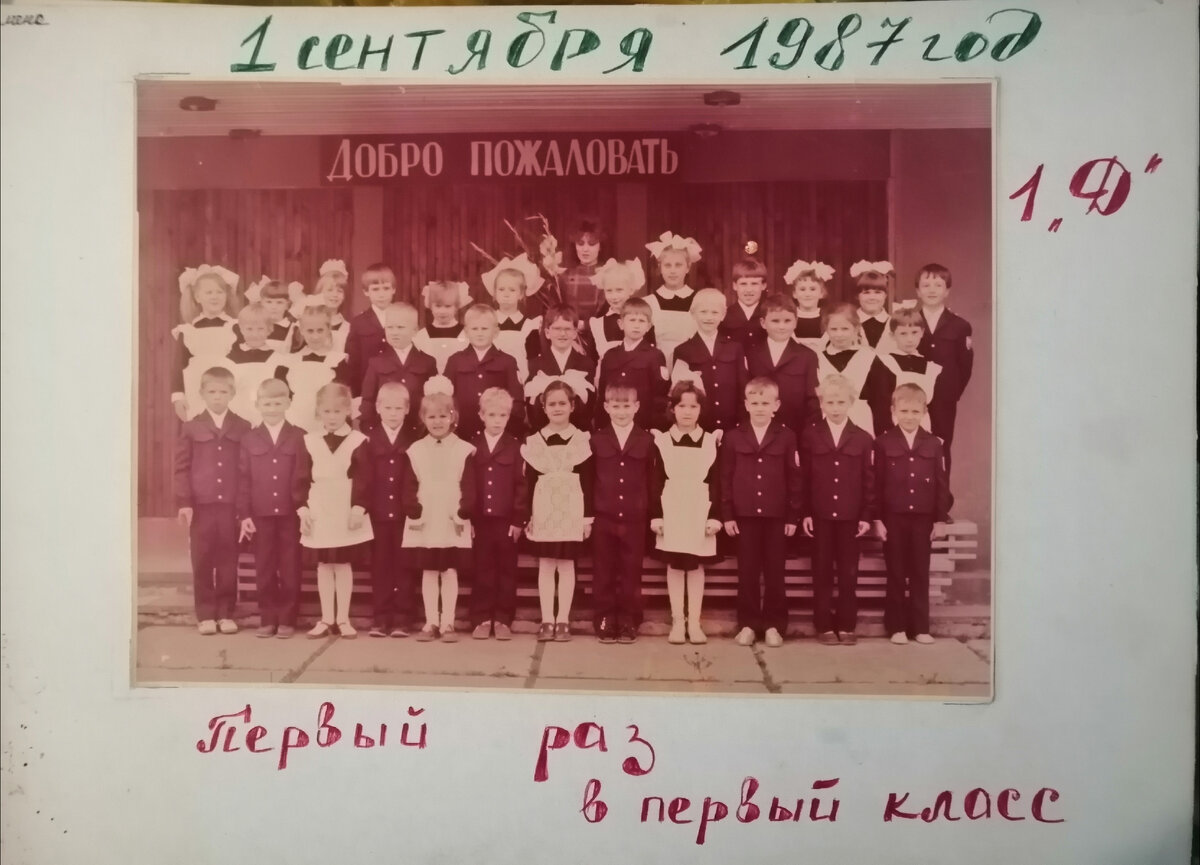 1 сентября 1987 год
ДОБРО ПОЖАЛОВАТЬ
1 „Д“
Первый раз
в первый класс